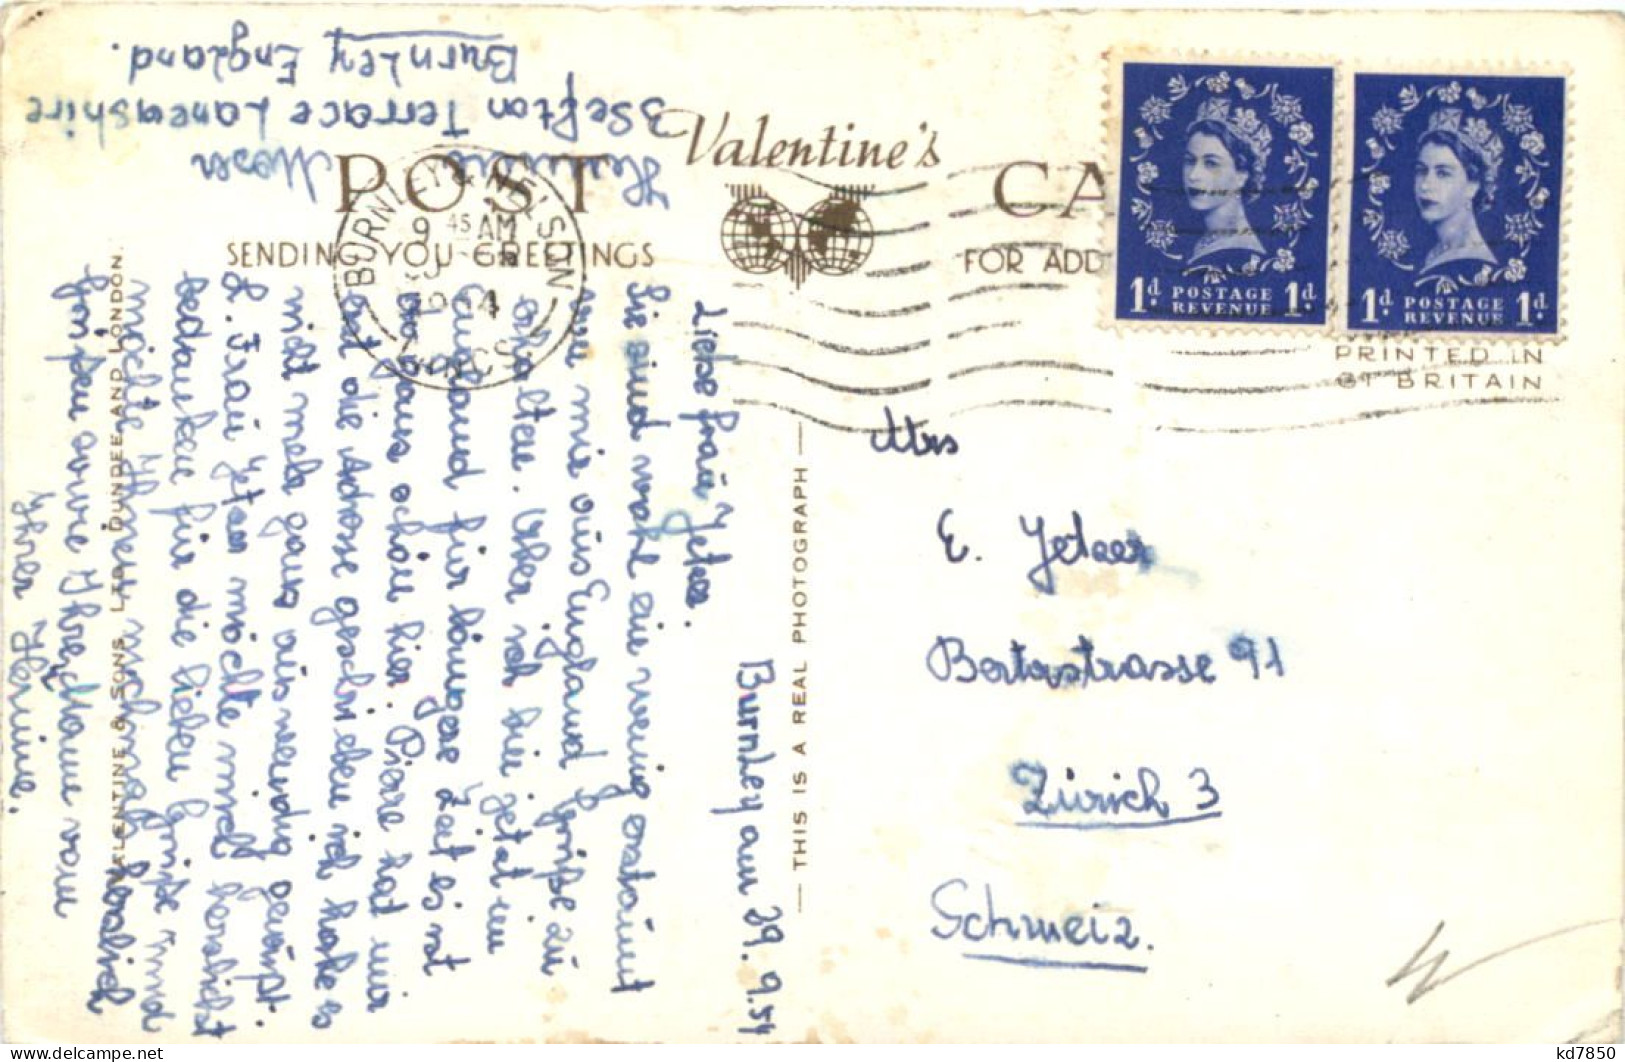 Valentine's
POST CA
SENDING YOU GREETINGS
FOR ADD
BURNLEY & NELSON
9 45 AM
1954
LANCS
1d. POSTAGE REVENUE 1d.
1d. POSTAGE REVENUE 1d.
PRINTED IN
GT BRITAIN
THIS IS A REAL PHOTOGRAPH
VALENTINE & SONS. LTD. DUNDEE AND LONDON.
Moser
3 Sefton Terrace Lancashire
Burnley England.
Burnley am 29. 9. 54
Liebe Frau
Sie sind wohl ein wenig erstaunt
von mir aus England Grüße zu
erhalten. Aber ich bin jetzt in
England für längere Zeit es ist
ganz schön hier. Pierre hat mir
die Adresse geschrieben ich habe es
nicht mehr ganz auswendig gewußt.
L. Frau möchte mich herzlichst
bedanken für die lieben Grüße und
möchte Ihnen nochmals herzlich
Grüßen sowie Ihre Mann von
Ihrer Hermine.
Mrs
E.
Bertastrasse 91
Zürich 3
Schweiz.
kd7850